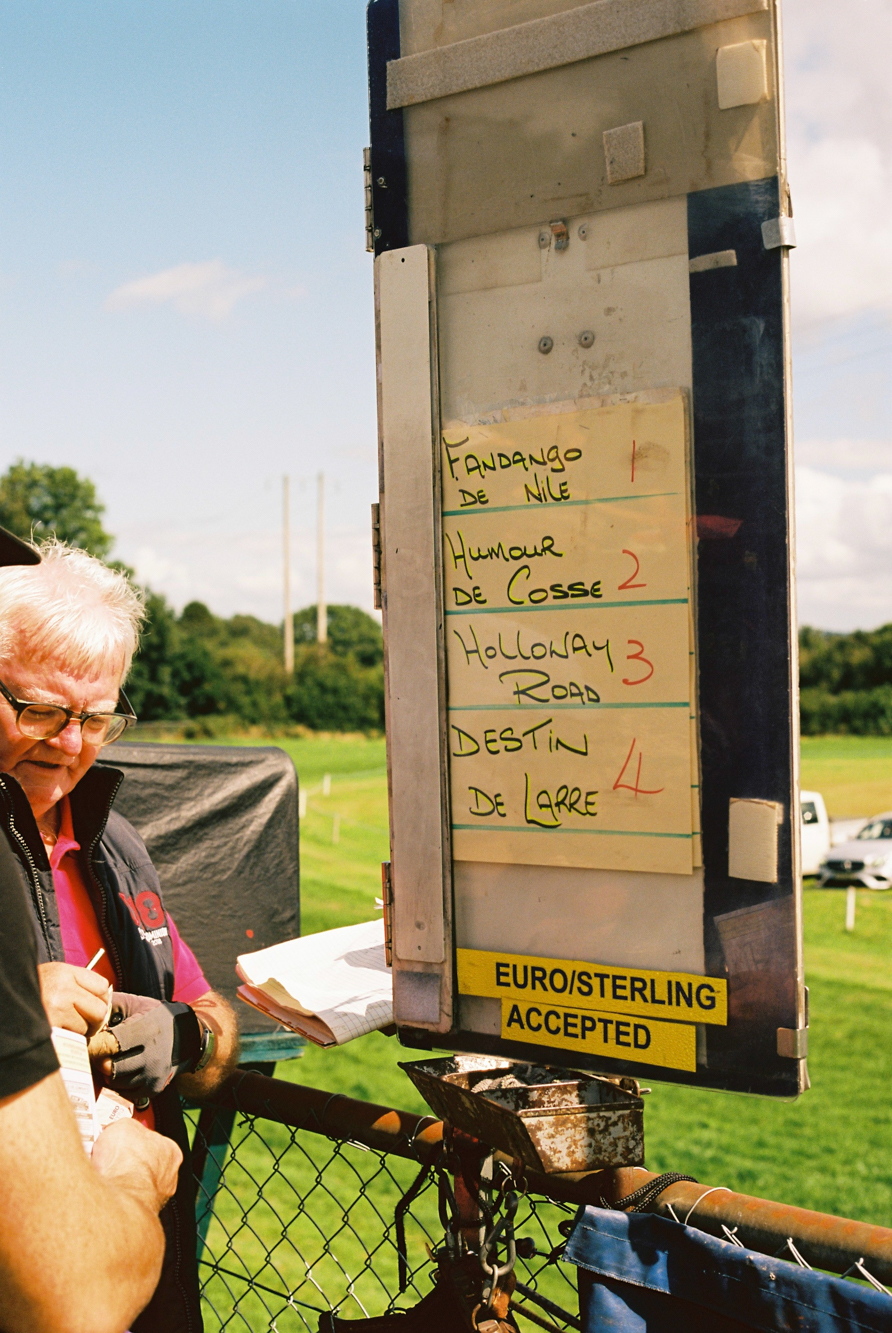 FANDANGO 1
DE NILE
HUMOUR
DE COSSE 2
HOLLOWAY 3
ROAD
DESTIN 4
DE LARRE
EURO/STERLING
ACCEPTED